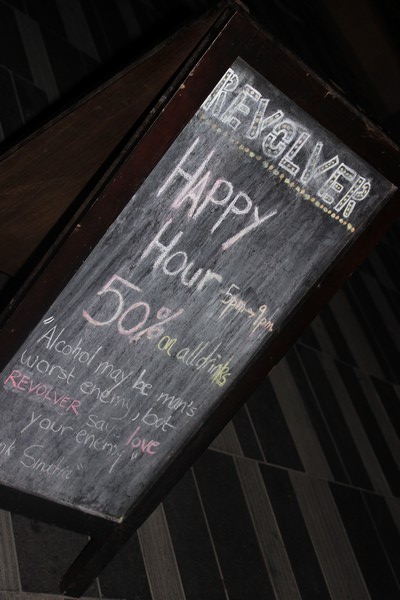 REVOLVER
HAPPY
Hour 5pm-9pm
50% on all drinks
"Alcohol may be man's
worst enemy, but
REVOLVER says love
your enemy"
Sinatra